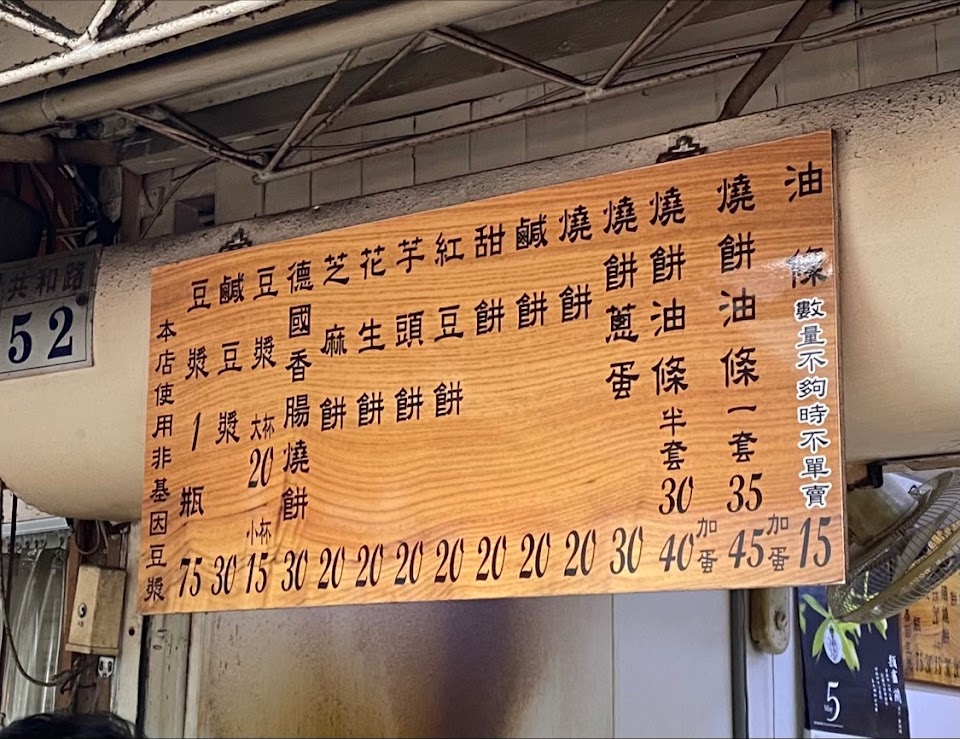 油條 數量不夠時不單賣 15
燒餅油條一套 35 45加蛋
燒餅油條半套 30 40加蛋
燒餅蔥蛋 30
燒餅 20
鹹餅 20
甜餅 20
紅豆餅 20
芋頭餅 20
花生餅 20
芝麻餅 20
德國香腸燒餅 30
豆漿 大杯20 小杯15
鹹豆漿 30
豆漿1瓶 75
本店使用非基因豆漿
共和路
52
5
May